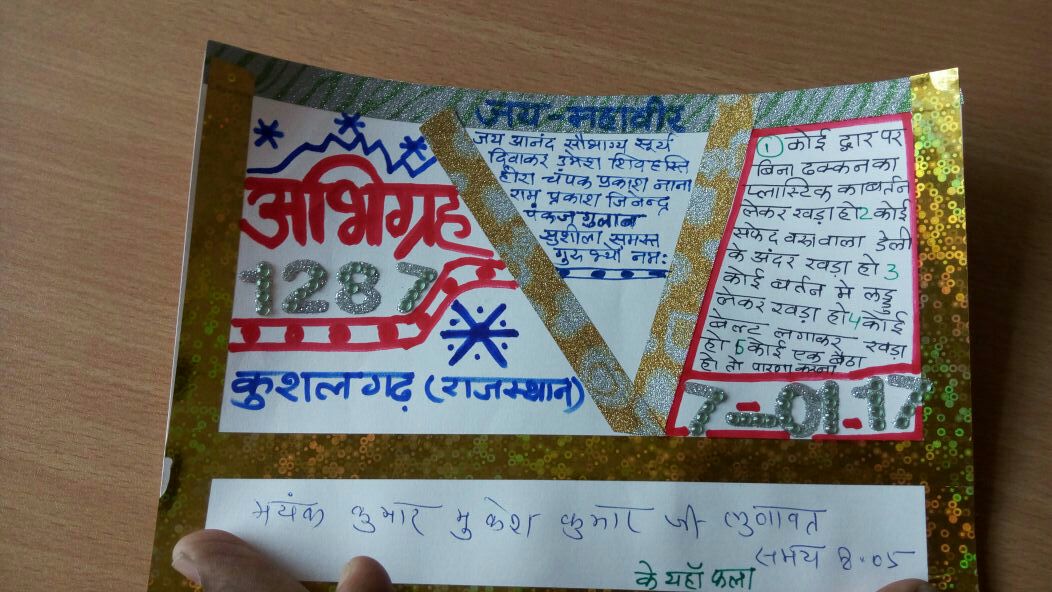 जय-महावीर
अभिग्रह
1287
कुशलगढ़ (राजस्थान)
जय आनंद सौभाग्य सूर्य
दिवाकर उमेश शिवहस्ति
हीरा चंपक प्रकाश नाना
राम प्रकाश जिनन्द्र
पंकज गुलाब
सुशीला समस्त
गुरु भ्यो नमः
1 कोई द्वार पर
बिना ढक्कन का
प्लास्टिक का बर्तन
लेकर खड़ा हो 2 कोई
सफेद वस्त्र वाला डेली
के अंदर खड़ा हो 3
कोई बर्तन मे लड्डु
लेकर खड़ा हो 4 कोई
बेल्ट लगाकर खड़ा
हो 5 कोई एक बैठा
हो तो पारणा करना
7-01-17
मयंक कुमार मुकेश कुमार जी लुनावत
समय 8.05
के यहाँ फला